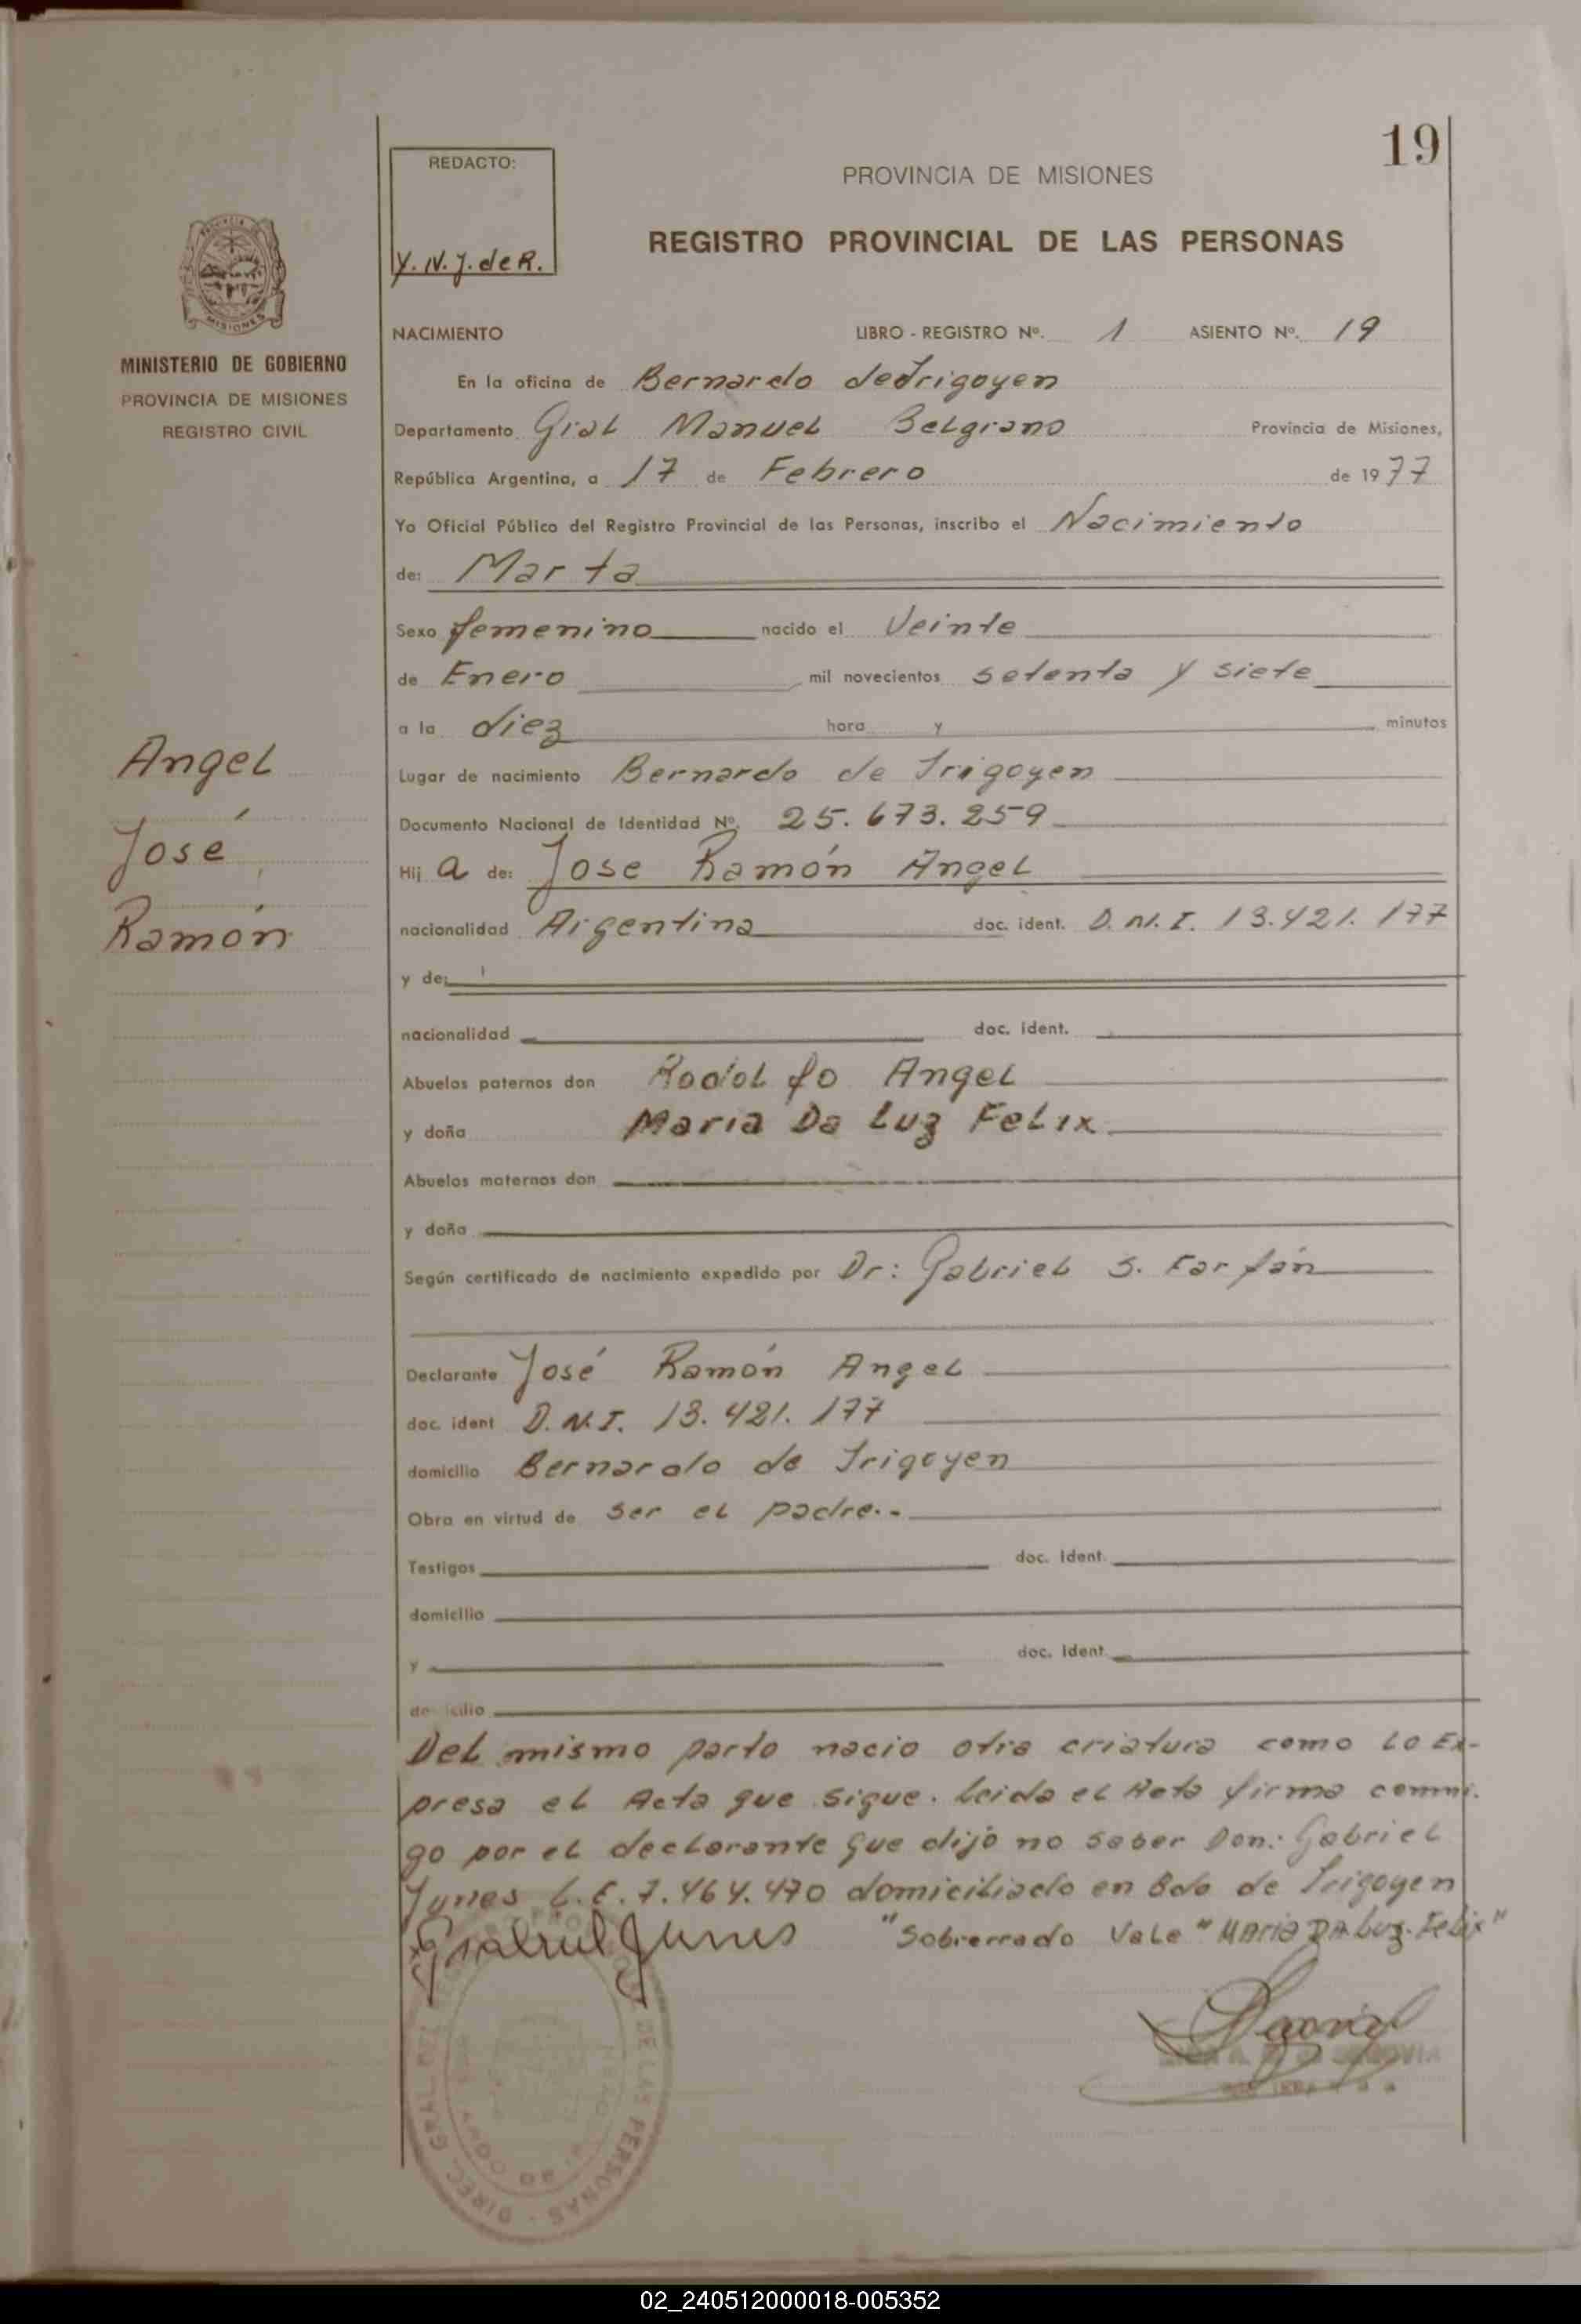 19
REDACTO:
Y. N. J. de R.
PROVINCIA DE MISIONES
REGISTRO PROVINCIAL DE LAS PERSONAS
MISIONES
MINISTERIO DE GOBIERNO
PROVINCIA DE MISIONES
REGISTRO CIVIL
Angel
José
Ramón
NACIMIENTO LIBRO - REGISTRO Nº. 1 ASIENTO Nº. 19
En la oficina de Bernardo de Irigoyen
Departamento Gral Manuel Belgrano Provincia de Misiones,
República Argentina, a 17 de Febrero de 1977
Yo Oficial Público del Registro Provincial de las Personas, inscribo el Nacimiento
de: Marta
Sexo femenino nacido el Veinte
de Enero mil novecientos setenta y siete
a la diez hora y minutos
Lugar de nacimiento Bernardo de Irigoyen
Documento Nacional de Identidad Nº. 25.673.259
Hij a de: Jose Ramón Angel
nacionalidad Argentina doc. ident. D.N.I. 13.421.177
y de:
nacionalidad doc. ident.
Abuelos paternos don Rodolfo Angel
y doña Maria Da Luz Felix
Abuelos maternos don
y doña
Según certificado de nacimiento expedido por Dr: Gabriel S. Farfán
Declarante José Ramón Angel
doc. ident D.N.I. 13.421.177
domicilio Bernardo de Irigoyen
Obra en virtud de ser el padre.-
Testigos doc. ident.
domicilio
y doc. ident.
domicilio
Del mismo parto nacio otra criatura como lo Ex-
presa el Acta que sigue. Leida el Acta firma conmi-
go por el declarante que dijo no saber Don: Gabriel
Junes L.E. 7.464.470 domiciliado en Bdo de Irigoyen
Gabriel Junes "Sobrerrado Vale "Maria DA Luz Felix"
DE LAS PERSONAS - DIREC. GRAL.
02_240512000018-005352